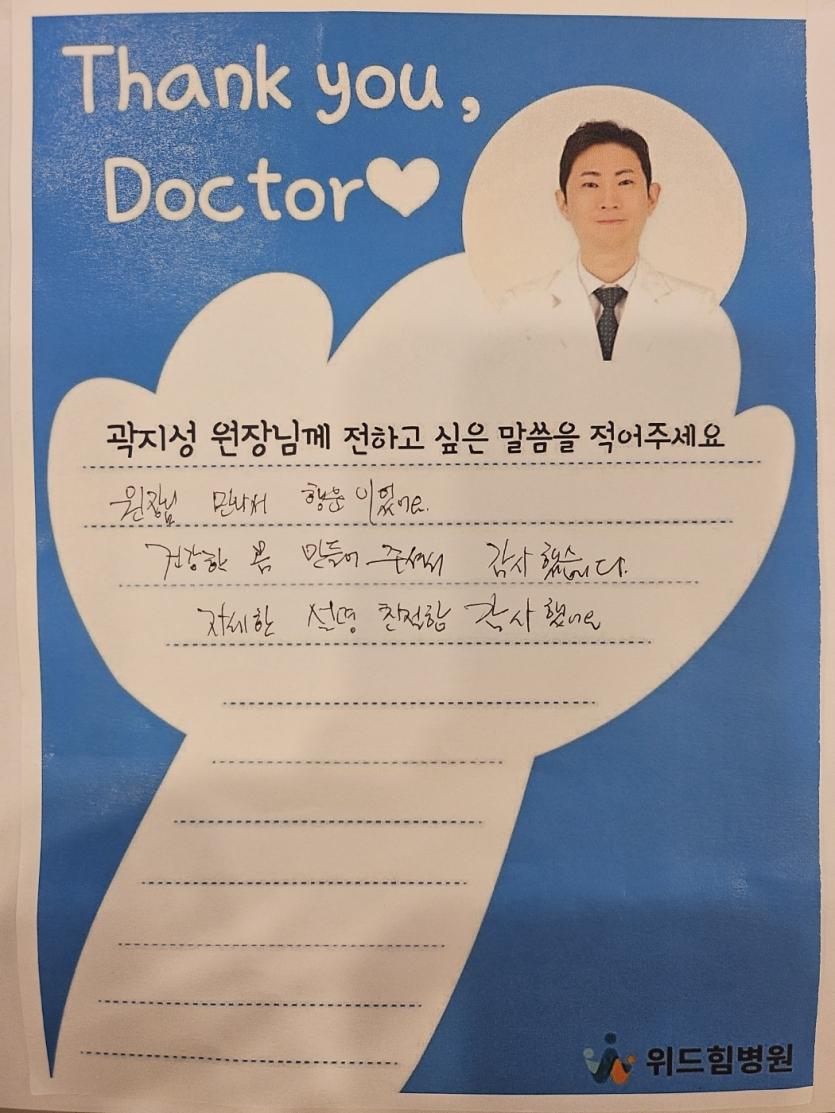 Thank you,
Doctor♥
곽지성 원장님께 전하고 싶은 말씀을 적어주세요
원장님 만나서 행운이었어요.
건강한 몸 만들어 주셔서 감사했습니다.
자세한 설명 친절함 감사했어요
위드힘병원